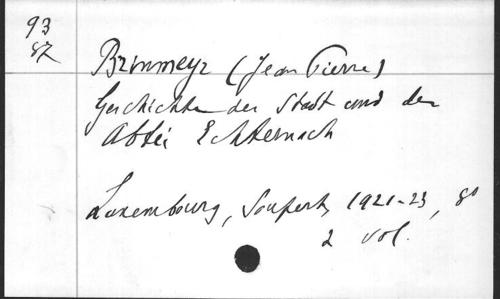 93
87
Brimmeyr (Jean Pierre)
Geschichte der Stadt und der
Abtei Echternach
Luxembourg, Soupert, 1921-23, 8°
2 vol.